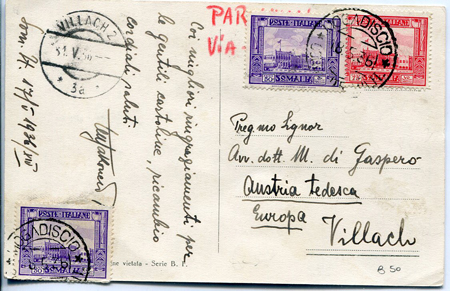 VILLACH 2
31.V.36
* 3a *
PAR
VIA
POSTE ITALIANE
SOMALIA
POSTE ITALIANE
MOGADISCIO
Coi migliori ringraziamenti per
le gentili cartoline, ricambio
cordiali saluti
Preg.mo Signor
Avv. dott. M. di Gaspero
Austria tedesca
Europa
Villach
B 50
POSTE ITALIANE
SOMALIA
MOGADISCIO
ne vietata - Serie B.